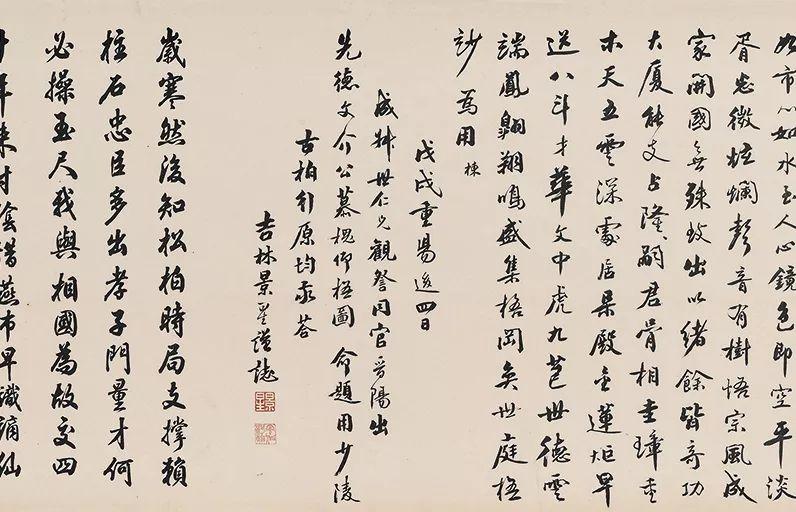 如市心如水玉人心鏡色即空平淡
胥忘微炷爛聲音有樹悟宗風成
家開國無殊致出以緒餘皆奇功
大厦能支占隆嗣君骨相圭璋重
木天五雲深處居殿金蓮炬早
送八斗才華文中虎九苞世德雲
端鳳翱翔鳴盛集梧岡奕世庭梧
為用棟
戊戌重陽後四日
世仁兄觀詧同官晉陽出
先德文介公慕槐仰梧圖 命題用少陵
古柏行原均敬答
吉林景星謹誌
歲寒然後知松柏時局支撐賴
柱石忠臣多出孝子門量才何
必操玉尺我與相國為故交四
十年來蔭借燕市早識謫仙